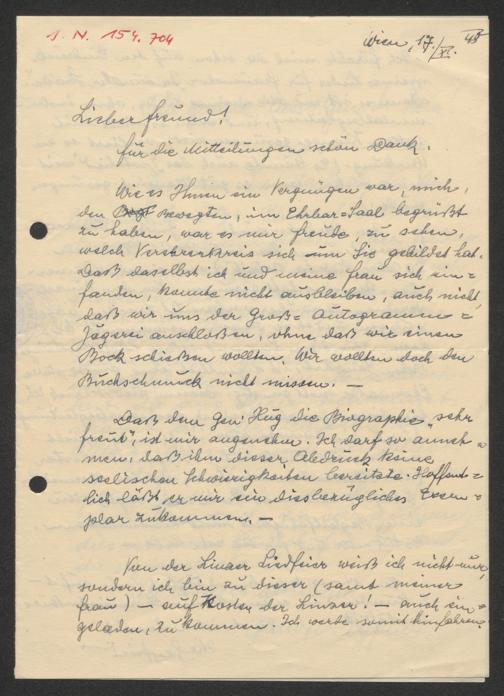 J. N. 154.704
Wien, 17./XI. 48
Lieber Freund!
für die Mitteilungen schön Dank.
Wie es Ihnen ein Vergnügen war, mich,
den bewegten, im Ehrbar=Saal begrüßt
zu haben, war es mir Freude, zu sehen,
welch Verehrerkreis sich um Sie gebildet hat.
Daß daselbst ich und meine Frau sich ein=
fanden, konnte nicht ausbleiben, auch nicht,
daß wir uns der Groß= Autogramm=
Jägerei anschloßen, ohne daß wir einen
Bock schießen wollten. Wir wollten doch den
Buchschmuck nicht missen. —
Daß dem Gen. Hug die Biographie „sehr
freut", ist mir angenehm. Ich darf so anneh=
men, daß ihm dieser Abdruck keine
seelischen Schwierigkeiten bereitete. Hoffent=
lich läßt er mir ein diesbezügliches Exem=
plar zukommen. —
Von der Linzer Liedfeier weiß ich nicht nur,
sondern ich bin zu dieser (samt meiner
Frau) — auf Kosten der Linzer! — auch ein=
geladen, zu kommen. Ich werde somit hinfahren.